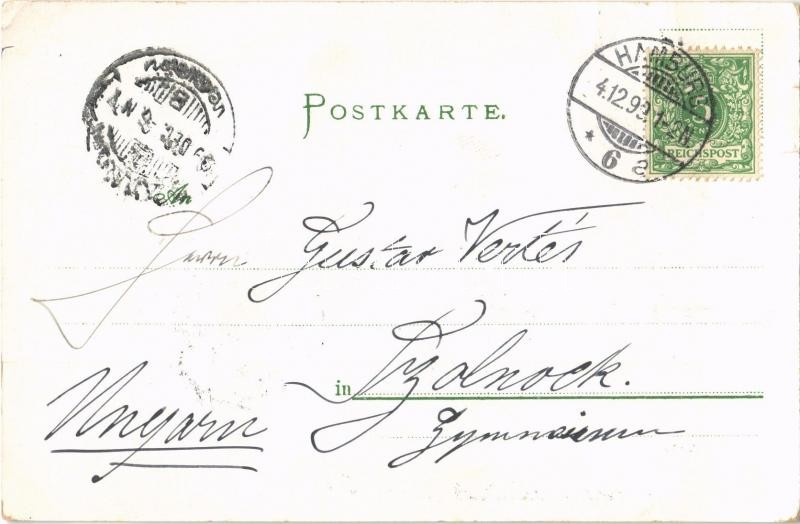 POSTKARTE.
HAMBURG
4.12.99.
* 6 a
REICHSPOST
Herrn Gustav Vertés
in Szolnock.
Gymnasium
Ungarn